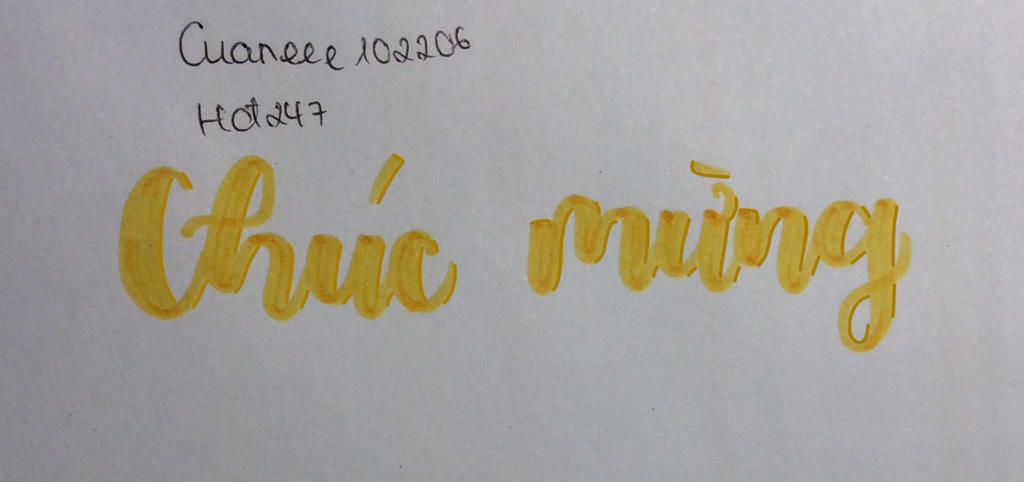 Cuaneee 102206
Hot247
Chúc mừng